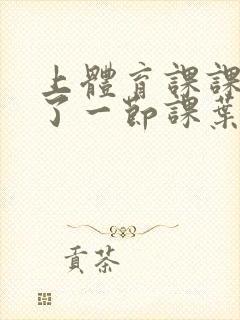 上體育課課
了一節課葉
貢茶